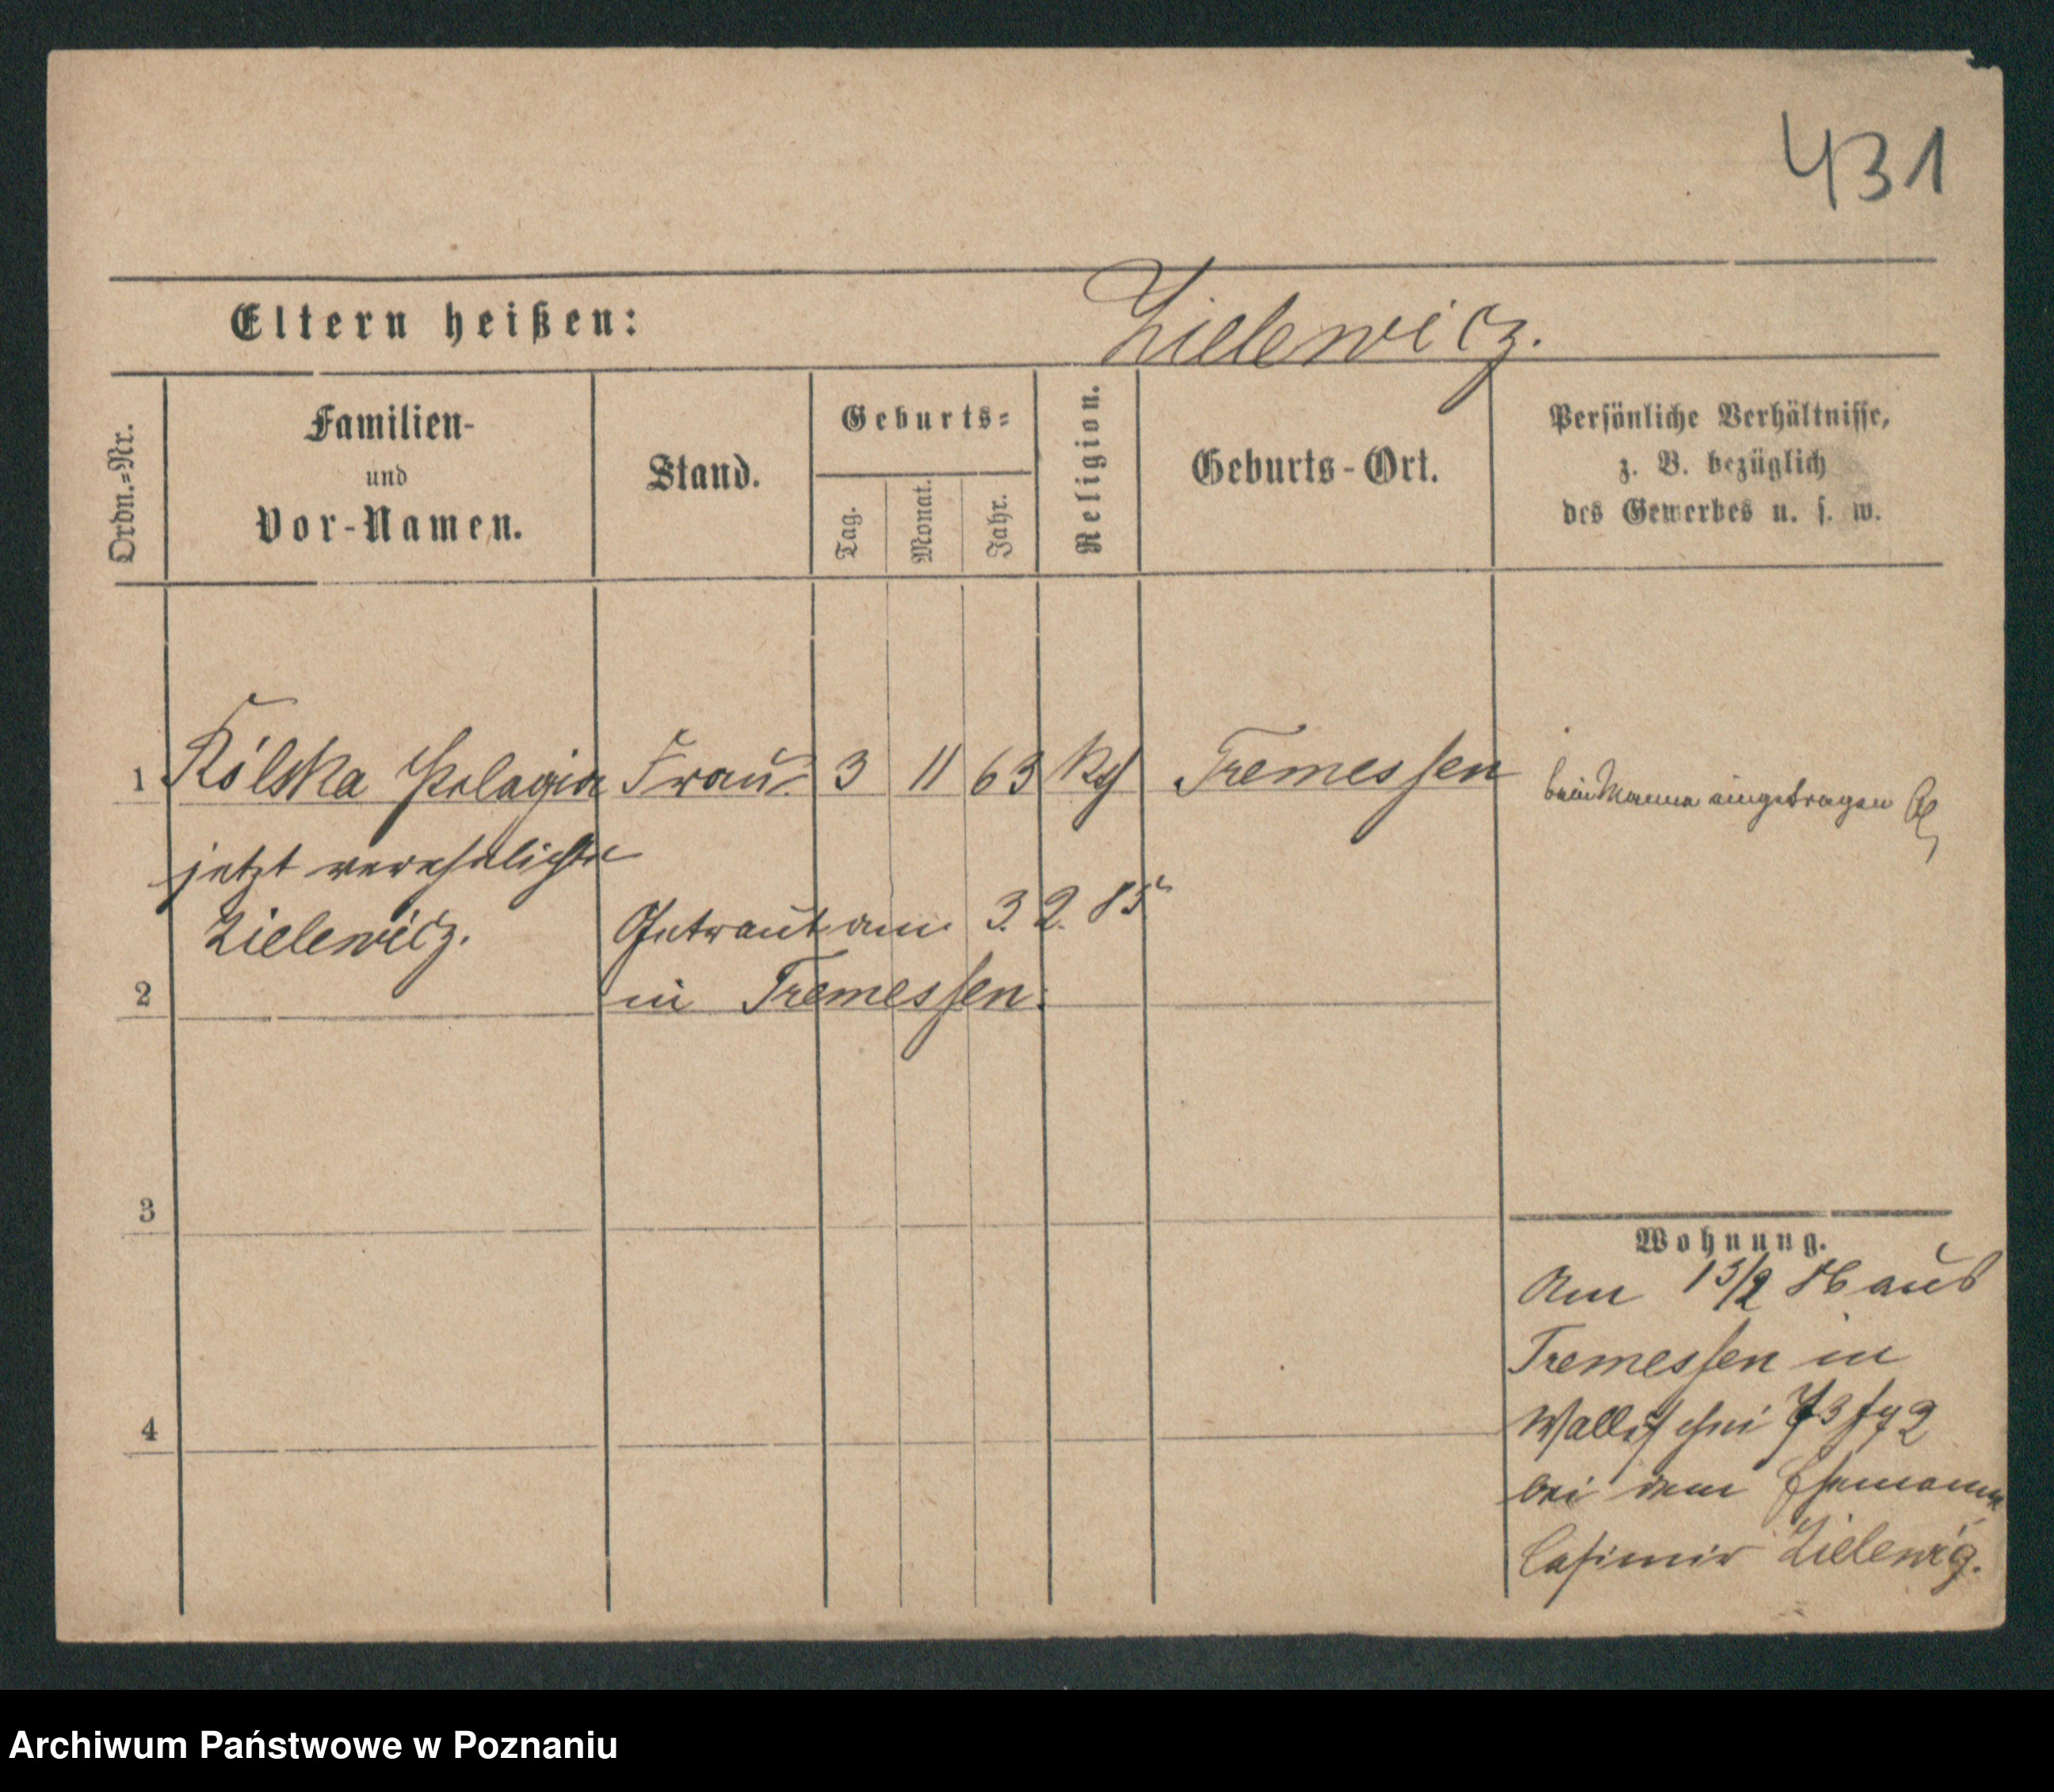 431
Eltern heißen: Zielewicz.
Ordn.=Nr.
Familien-
und
Vor-Namen.
Stand.
Geburts=
Tag.
Monat.
Jahr.
Religion.
Geburts-Ort.
Persönliche Verhältnisse,
z. B. bezüglich
des Gewerbes u. s. w.
1 Kólska Pelagia Frau 3 11 63 Tremessen
beim Manne eingetragen
jetzt verehelichte
Zielewicz.
Getraut am 3. 2. 85
2 in Tremessen.
3
4
Wohnung.
Am 13/2 86 aus
Tremessen in
Wallischei 73
bei dem Ehemann
Casimir Zielewicz.
Archiwum Państwowe w Poznaniu